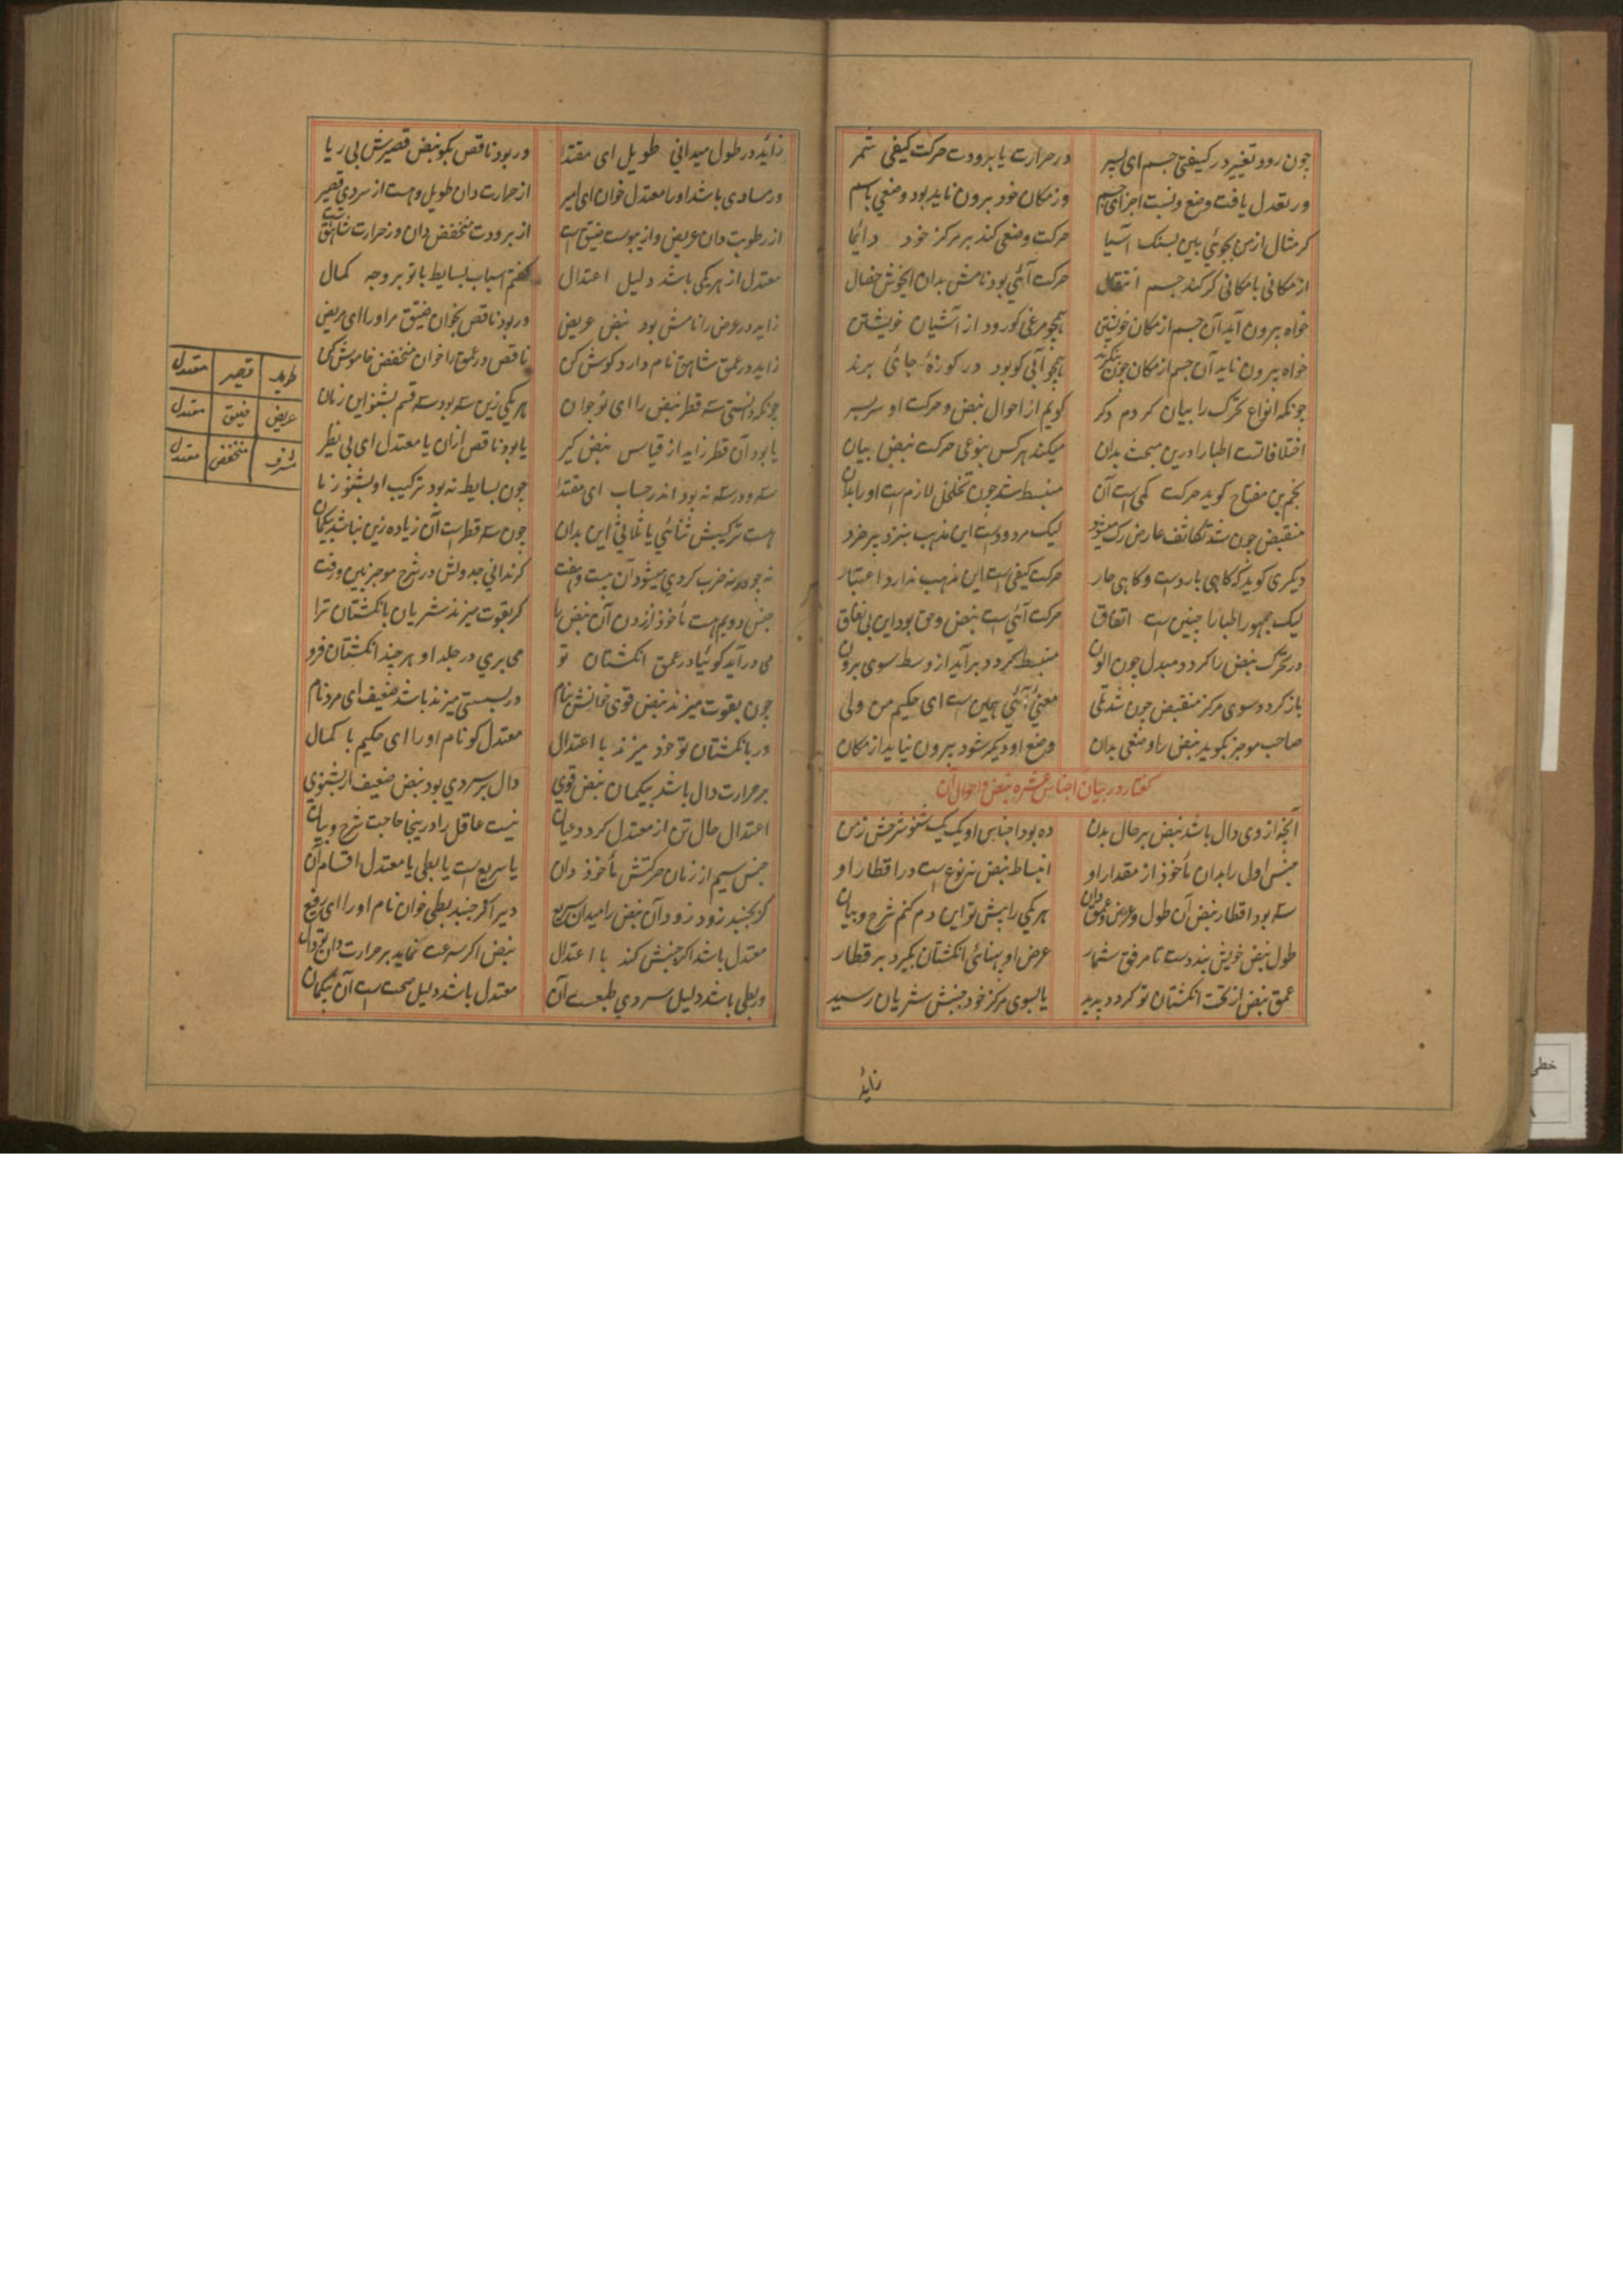 چون رود تغییر در کیفیتی جسم ای پسر در حرارت یا برودت حرکت کیفی شمر
ور تعدل یافت وضع و نسبت اجزای جسم وز مکان خود برون ناید بود وضعی باسم
گر مثال از من بجوئی بین بسنک آسیا حرکت وضعی کند بر مرکز خود دائما
از مکانی با مکانی گر کند جسم انتقال حرکت آئنی بود نامش بدان ایخوش خصال
خواه بیرون آید آن جسم از مکان خویشتن همچو مرغی کو رود از آشیان خویشتن
خواه بیرون ناید آن جسم از مکان چون بنگرند همچو آبی کو بود در کوزهٔ جائی برند
چونکه انواع تحرک را بیان کردم دکر کویم از احوال نبض و حرکت او سر بسر
اختلافاتست اطبا را درین مبحث بدان میکند هر کس بنوعی حرکت نبض بیان
نجم بن مفتاح کوید حرکت کمی است آن منبسط شد چون تخلخل لازم است او را بدان
منقبض چون شد تکاثف عارض رک میشود لیک مردودست این مذهب بنزد پر خرد
دیکری کوید که کاهی باردست و کاهی حار حرکت کیفی است این مذهب ندارد اعتبار
لیک جمهور اطبا را چنین است اتفاق حرکت آئنی است نبض و حق بود این بی نفاق
در تحرک نبض را کردد مبدل چون الون منبسط کردد برآید از وسط سوی برون
باز کردد سوی مرکز منقبض چون شد تلی معنی آئنی همین است ای حکیم من ولی
صاحب موجز بکوید نبض را وضعی بدان وضع او دیکر شود بیرون نیاید از مکان
کفتار در بیان اجناس عشره نبض و احوال آن
آنچه از وی دال باشد نبض بر حال بدن ده بود اجناس او یک یک شنو شرحش زمن
جنس اول را بدان مأخوذ از مقدار او انبساط نبض هر نوع است در اقطار او
سه بود اقطار نبض آن طول و عرض و عمق دان هر یکی را پیش تو این دم کنم شرح و بیان
طول نبض خویش بند دست تا مرفق شمار عرض او پهنائی انکشتان بکیرد بر قطار
عمق نبض از تحت انکشتان تو کردد پدید یا بسوی مرکز خود جنبش شریان رسید
زاید
زاید در طول میدانی طویل ای مقتدا ور بود ناقص بکو نبض قصیرش بی ریا
ور مساوی باشد اورا معتدل خوان ای امیر از حرارت دان طویل و هست از سردی قصیر
از رطوبت دان عریض و از یبوست ضیق است از برودت منخفض دان وز حرارت شاهق است
معتدل از هر یکی باشد دلیل اعتدال کفتم اسباب بسایط با تو بر وجه کمال
زاید در عرض را نامش بود نبض عریض ور بود ناقص بخوان ضیق مر اورا ای مریض
زاید در عمق شاهق نام دارد کوش کن ناقص در عمق را خوان منخفض خاموش کن
چونکه دانستی سه قطر نبض را ای نوجوان هر یکی زین سه بود سه قسم بشنو این زمان
یا بود آن قطر زاید از قیاس نبض کیر یا بود ناقص ازان یا معتدل ای بی نظیر
سه در سه نه بود اندر حساب ای مقتدا چون بسایط نه بود ترکیب او بشنو زما
هست ترکیبش ثنائی یا ثلاثی این بدان چون سه قطر است آن زیاده زین نباشد بیکمان
نه چو در نه ضرب کردی میشود آن بیست و هفت کر ندانی جدولش در شرح موجز بین و رفت
جنس دویم هست مأخوذ از زدن آن نبض را کر بقوت میزند شریان بانکشتان ترا
می درآید کوئیا در عمق انکشتان تو می بری در جلد او هر چند انکشتان فرو
چون بقوت میزند نبض قوی خوانش بنام ور بسستی میزند باشد ضعیف ای مرد نام
ور بانکشتان تو خود میزند با اعتدال معتدل کو نام او را ای حکیم با کمال
بر حرارت دال باشد بیکمان نبض قوی دال بر سردی بود نبض ضعیف ار بشنوی
اعتدال حال تن از معتدل کردد عیان نیست عاقل را درینجا حاجت شرح و بیان
جنس سیم از زمان حرکتش مأخوذ دان یا سریع است یا بطی یا معتدل اقسام آن
کر بجنبد زود زود آن نبض را میدان سریع دیر اکر جنبد بطی خوان نام اورا ای رفیع
معتدل باشد اکر جنبش کند با اعتدال نبض اکر سرعت نماید بر حرارت دان تو دال
ور بطی باشد دلیل سردی طبعست آن معتدل باشد دلیل صحت است آن بیکمان
طویل قصیر معتدل
عریض ضیق معتدل
مشرف منخفض معتدل
خطی